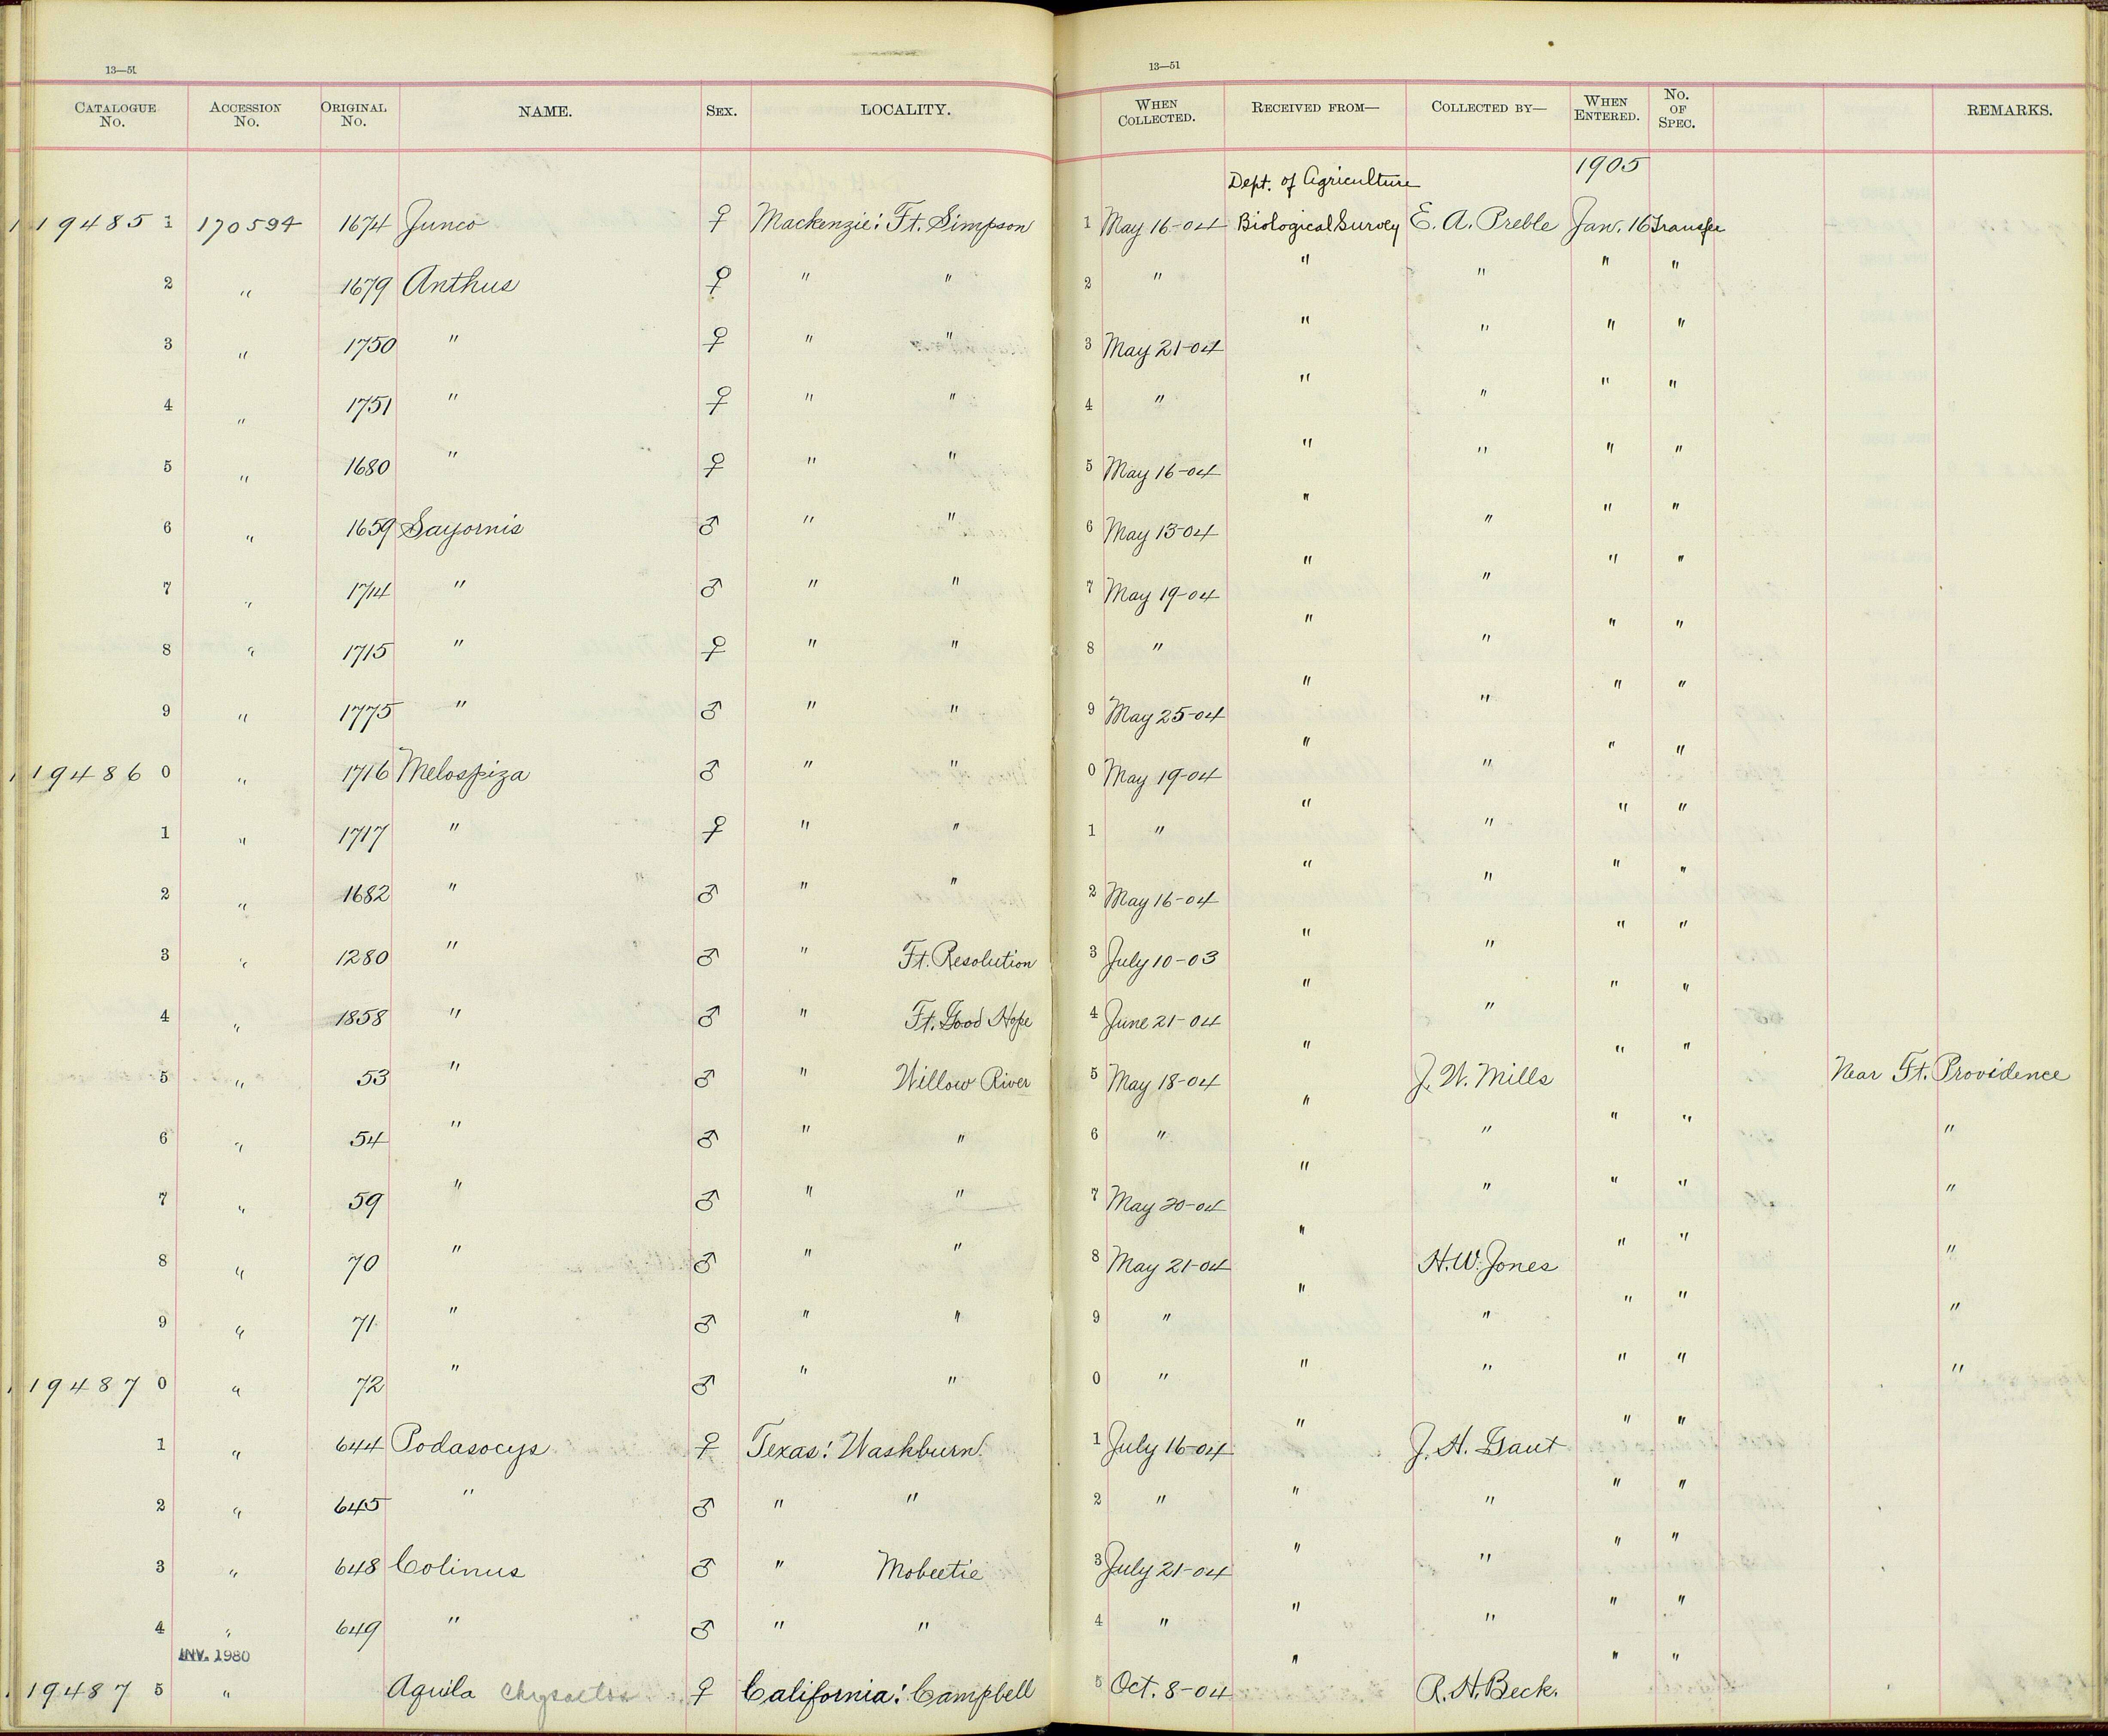 13—51
13—51
CATALOGUE No. ACCESSION No. ORIGINAL No. NAME. SEX. LOCALITY. WHEN COLLECTED. RECEIVED FROM— COLLECTED BY— WHEN ENTERED. No. OF SPEC. REMARKS.
Dept. of Agriculture 1905
119485 1 170594 1674 Junco ♀ Mackenzie: Ft. Simpson 1 May 16-04 Biological Survey E. A. Preble Jan. 16 Transfer
2 " 1679 Anthus ♀ " " 2 " " " " "
3 " 1750 " ♀ " " 3 May 21-04 " " " "
4 " 1751 " ♀ " " 4 " " " " "
5 " 1680 " ♀ " " 5 May 16-04 " " " "
6 " 1659 Sayornis ♂ " " 6 May 13-04 " " " "
7 " 1714 " ♂ " " 7 May 19-04 " " " "
8 " 1715 " ♀ " " 8 " " " " "
9 " 1775 " ♂ " " 9 May 25-04 " " " "
119486 0 " 1716 Melospiza ♂ " " 0 May 19-04 " " " "
1 " 1717 " ♀ " " 1 " " " " "
2 " 1682 " ♂ " " 2 May 16-04 " " " "
3 " 1280 " ♂ " Ft. Resolution 3 July 10-03 " " " "
4 " 1858 " ♂ " Ft. Good Hope 4 June 21-04 " " " "
5 " 53 " ♂ " Willow River 5 May 18-04 " J. W. Mills " " Near Ft. Providence
6 " 54 " ♂ " " 6 " " " " " "
7 " 59 " ♂ " " 7 May 20-04 " " " " "
8 " 70 " ♂ " " 8 May 21-04 " H. W. Jones " " "
9 " 71 " ♂ " " 9 " " " " " "
119487 0 " 72 " ♂ " " 0 " " " " " "
1 " 644 Podasocys ♀ Texas: Washburn 1 July 16-04 " J. H. Gaut " "
2 " 645 " ♂ " " 2 " " " " "
3 " 648 Colinus ♂ " Mobeetie 3 July 21-04 " " " "
4 " 649 " ♂ " " 4 " " " " "
INV. 1980
19487 5 " Aquila chrysaetos ♀ California: Campbell 5 Oct. 8-04 " R. H. Beck. " "